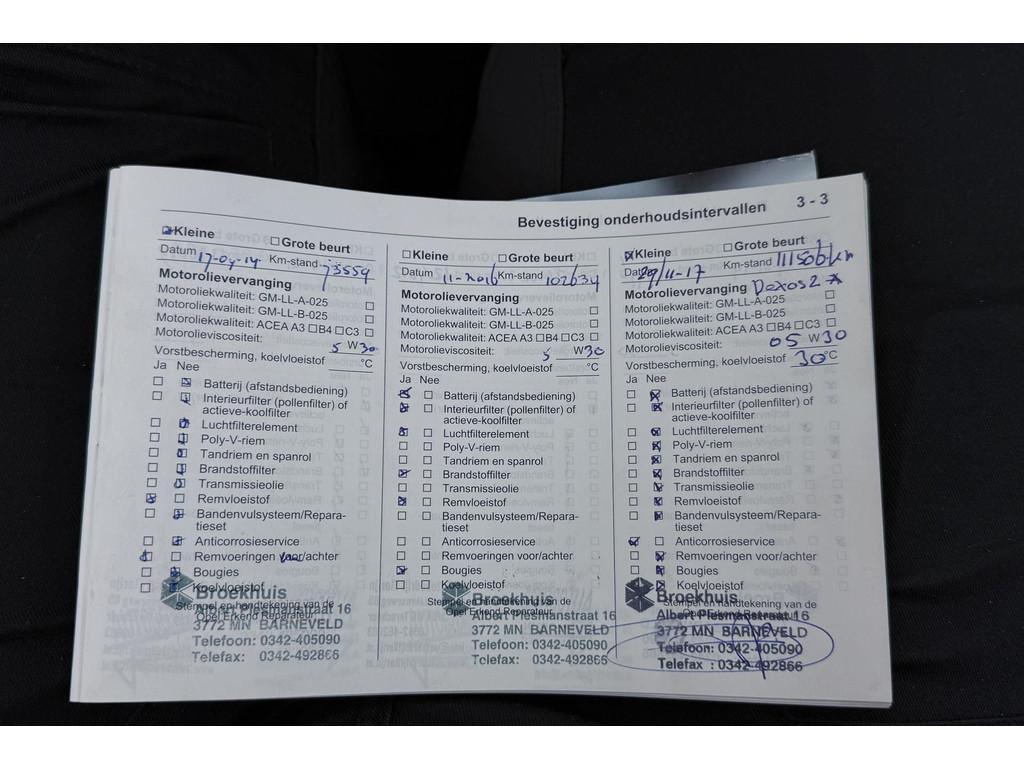 Bevestiging onderhoudsintervallen 3 - 3
Kleine Grote beurt
Datum 17-04-14 Km-stand 73559
Motorolievervanging
Motoroliekwaliteit: GM-LL-A-025
Motoroliekwaliteit: GM-LL-B-025
Motoroliekwaliteit: ACEA A3 B4 C3
Motorolieviscositeit: 5 W30
Vorstbescherming, koelvloeistof °C
Ja Nee
Batterij (afstandsbediening)
Interieurfilter (pollenfilter) of
actieve-koolfilter
Luchtfilterelement
Poly-V-riem
Tandriem en spanrol
Brandstoffilter
Transmissieolie
Remvloeistof
Bandenvulsysteem/Repara-
tieset
Anticorrosieservice
Remvoeringen voor/achter
Bougies
Koelvloeistof
Stempel en handtekening van de
Opel Erkend Reparateur
Broekhuis
Albert Plesmanstraat 16
3772 MN BARNEVELD
Telefoon: 0342-405090
Telefax: 0342-492866
Kleine Grote beurt
Datum 11-2016 Km-stand 102634
Motorolievervanging
Motoroliekwaliteit: GM-LL-A-025
Motoroliekwaliteit: GM-LL-B-025
Motoroliekwaliteit: ACEA A3 B4 C3
Motorolieviscositeit: 5 W30
Vorstbescherming, koelvloeistof °C
Ja Nee
Batterij (afstandsbediening)
Interieurfilter (pollenfilter) of
actieve-koolfilter
Luchtfilterelement
Poly-V-riem
Tandriem en spanrol
Brandstoffilter
Transmissieolie
Remvloeistof
Bandenvulsysteem/Repara-
tieset
Anticorrosieservice
Remvoeringen voor/achter
Bougies
Koelvloeistof
Stempel en handtekening van de
Opel Erkend Reparateur
Broekhuis
Albert Plesmanstraat 16
3772 MN BARNEVELD
Telefoon: 0342-405090
Telefax: 0342-492866
Kleine Grote beurt
Datum 29/11-17 Km-stand
Motorolievervanging Dexos2
Motoroliekwaliteit: GM-LL-A-025
Motoroliekwaliteit: GM-LL-B-025
Motoroliekwaliteit: ACEA A3 B4 C3
Motorolieviscositeit: 05 W30
Vorstbescherming, koelvloeistof 30°C
Ja Nee
Batterij (afstandsbediening)
Interieurfilter (pollenfilter) of
actieve-koolfilter
Luchtfilterelement
Poly-V-riem
Tandriem en spanrol
Brandstoffilter
Transmissieolie
Remvloeistof
Bandenvulsysteem/Repara-
tieset
Anticorrosieservice
Remvoeringen voor/achter
Bougies
Koelvloeistof
Stempel en handtekening van de
Opel Erkend Reparateur
Broekhuis
Albert Plesmanstraat 16
3772 MN BARNEVELD
Telefoon: 0342-405090
Telefax : 0342-492866